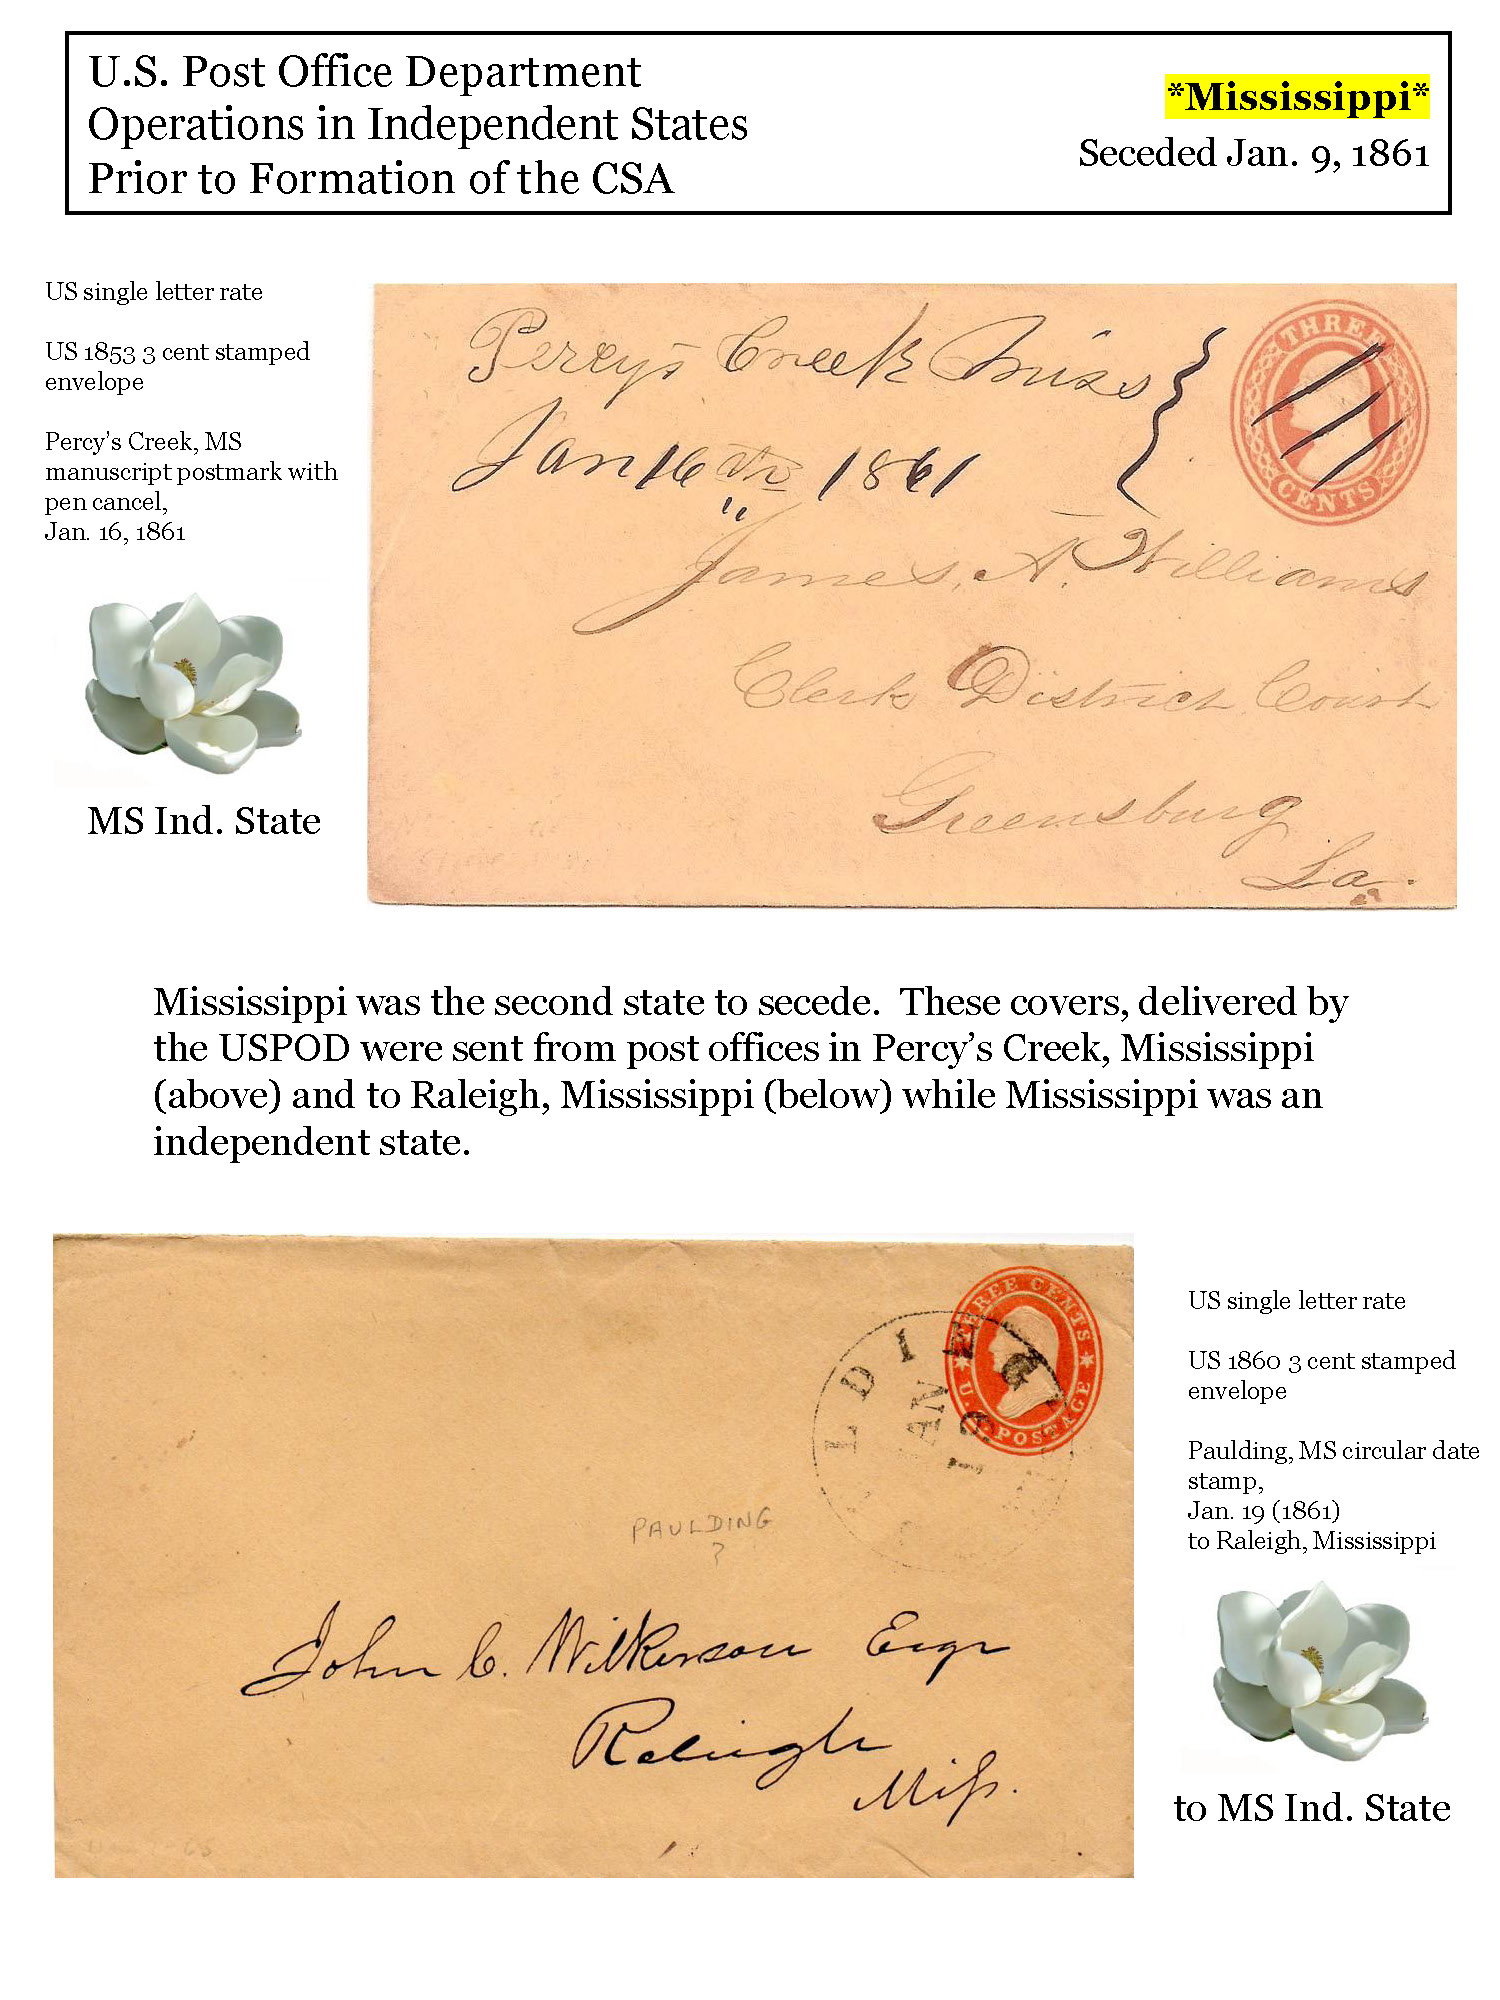 U.S. Post Office Department
Operations in Independent States
Prior to Formation of the CSA
*Mississippi*
Seceded Jan. 9, 1861
US single letter rate
US 1853 3 cent stamped
envelope
Percy's Creek, MS
manuscript postmark with
pen cancel,
Jan. 16, 1861
MS Ind. State
Percy's Creek Miss
Jan 16th 1861
THREE
CENTS
James, A. Williams
Clerk District Court
Greensburg
La.
Mississippi was the second state to secede. These covers, delivered by
the USPOD were sent from post offices in Percy's Creek, Mississippi
(above) and to Raleigh, Mississippi (below) while Mississippi was an
independent state.
THREE CENTS
U.S. POSTAGE
LDING
JAN
19
PAULDING
?
John C. Wilkinson Esqr
Raleigh
Miss.
US single letter rate
US 1860 3 cent stamped
envelope
Paulding, MS circular date
stamp,
Jan. 19 (1861)
to Raleigh, Mississippi
to MS Ind. State